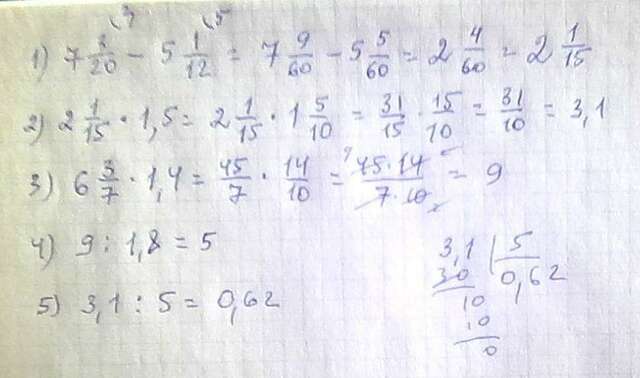 1) 7 3/20 - 5 1/12 = 7 9/60 - 5 5/60 = 2 4/60 = 2 1/15
2) 2 1/15 · 1,5 = 2 1/15 · 1 5/10 = 31/15 · 15/10 = 31/10 = 3,1
3) 6 3/7 · 1,4 = 45/7 · 14/10 = 45·14/7·10 = 9
4) 9 : 1,8 = 5
5) 3,1 : 5 = 0,62
3,1 | 5
30 0,62
10
10
0